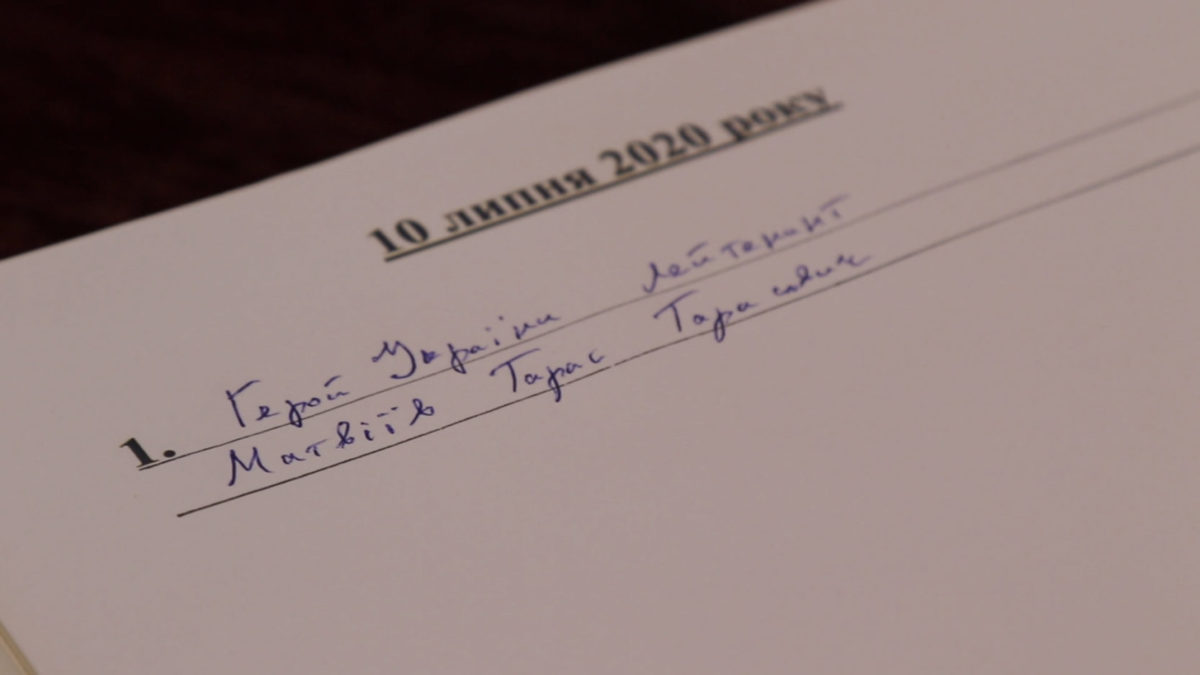 10 липня 2020 року
1. Герой України Лейтенант
Матвіїв Тарас Тарасович